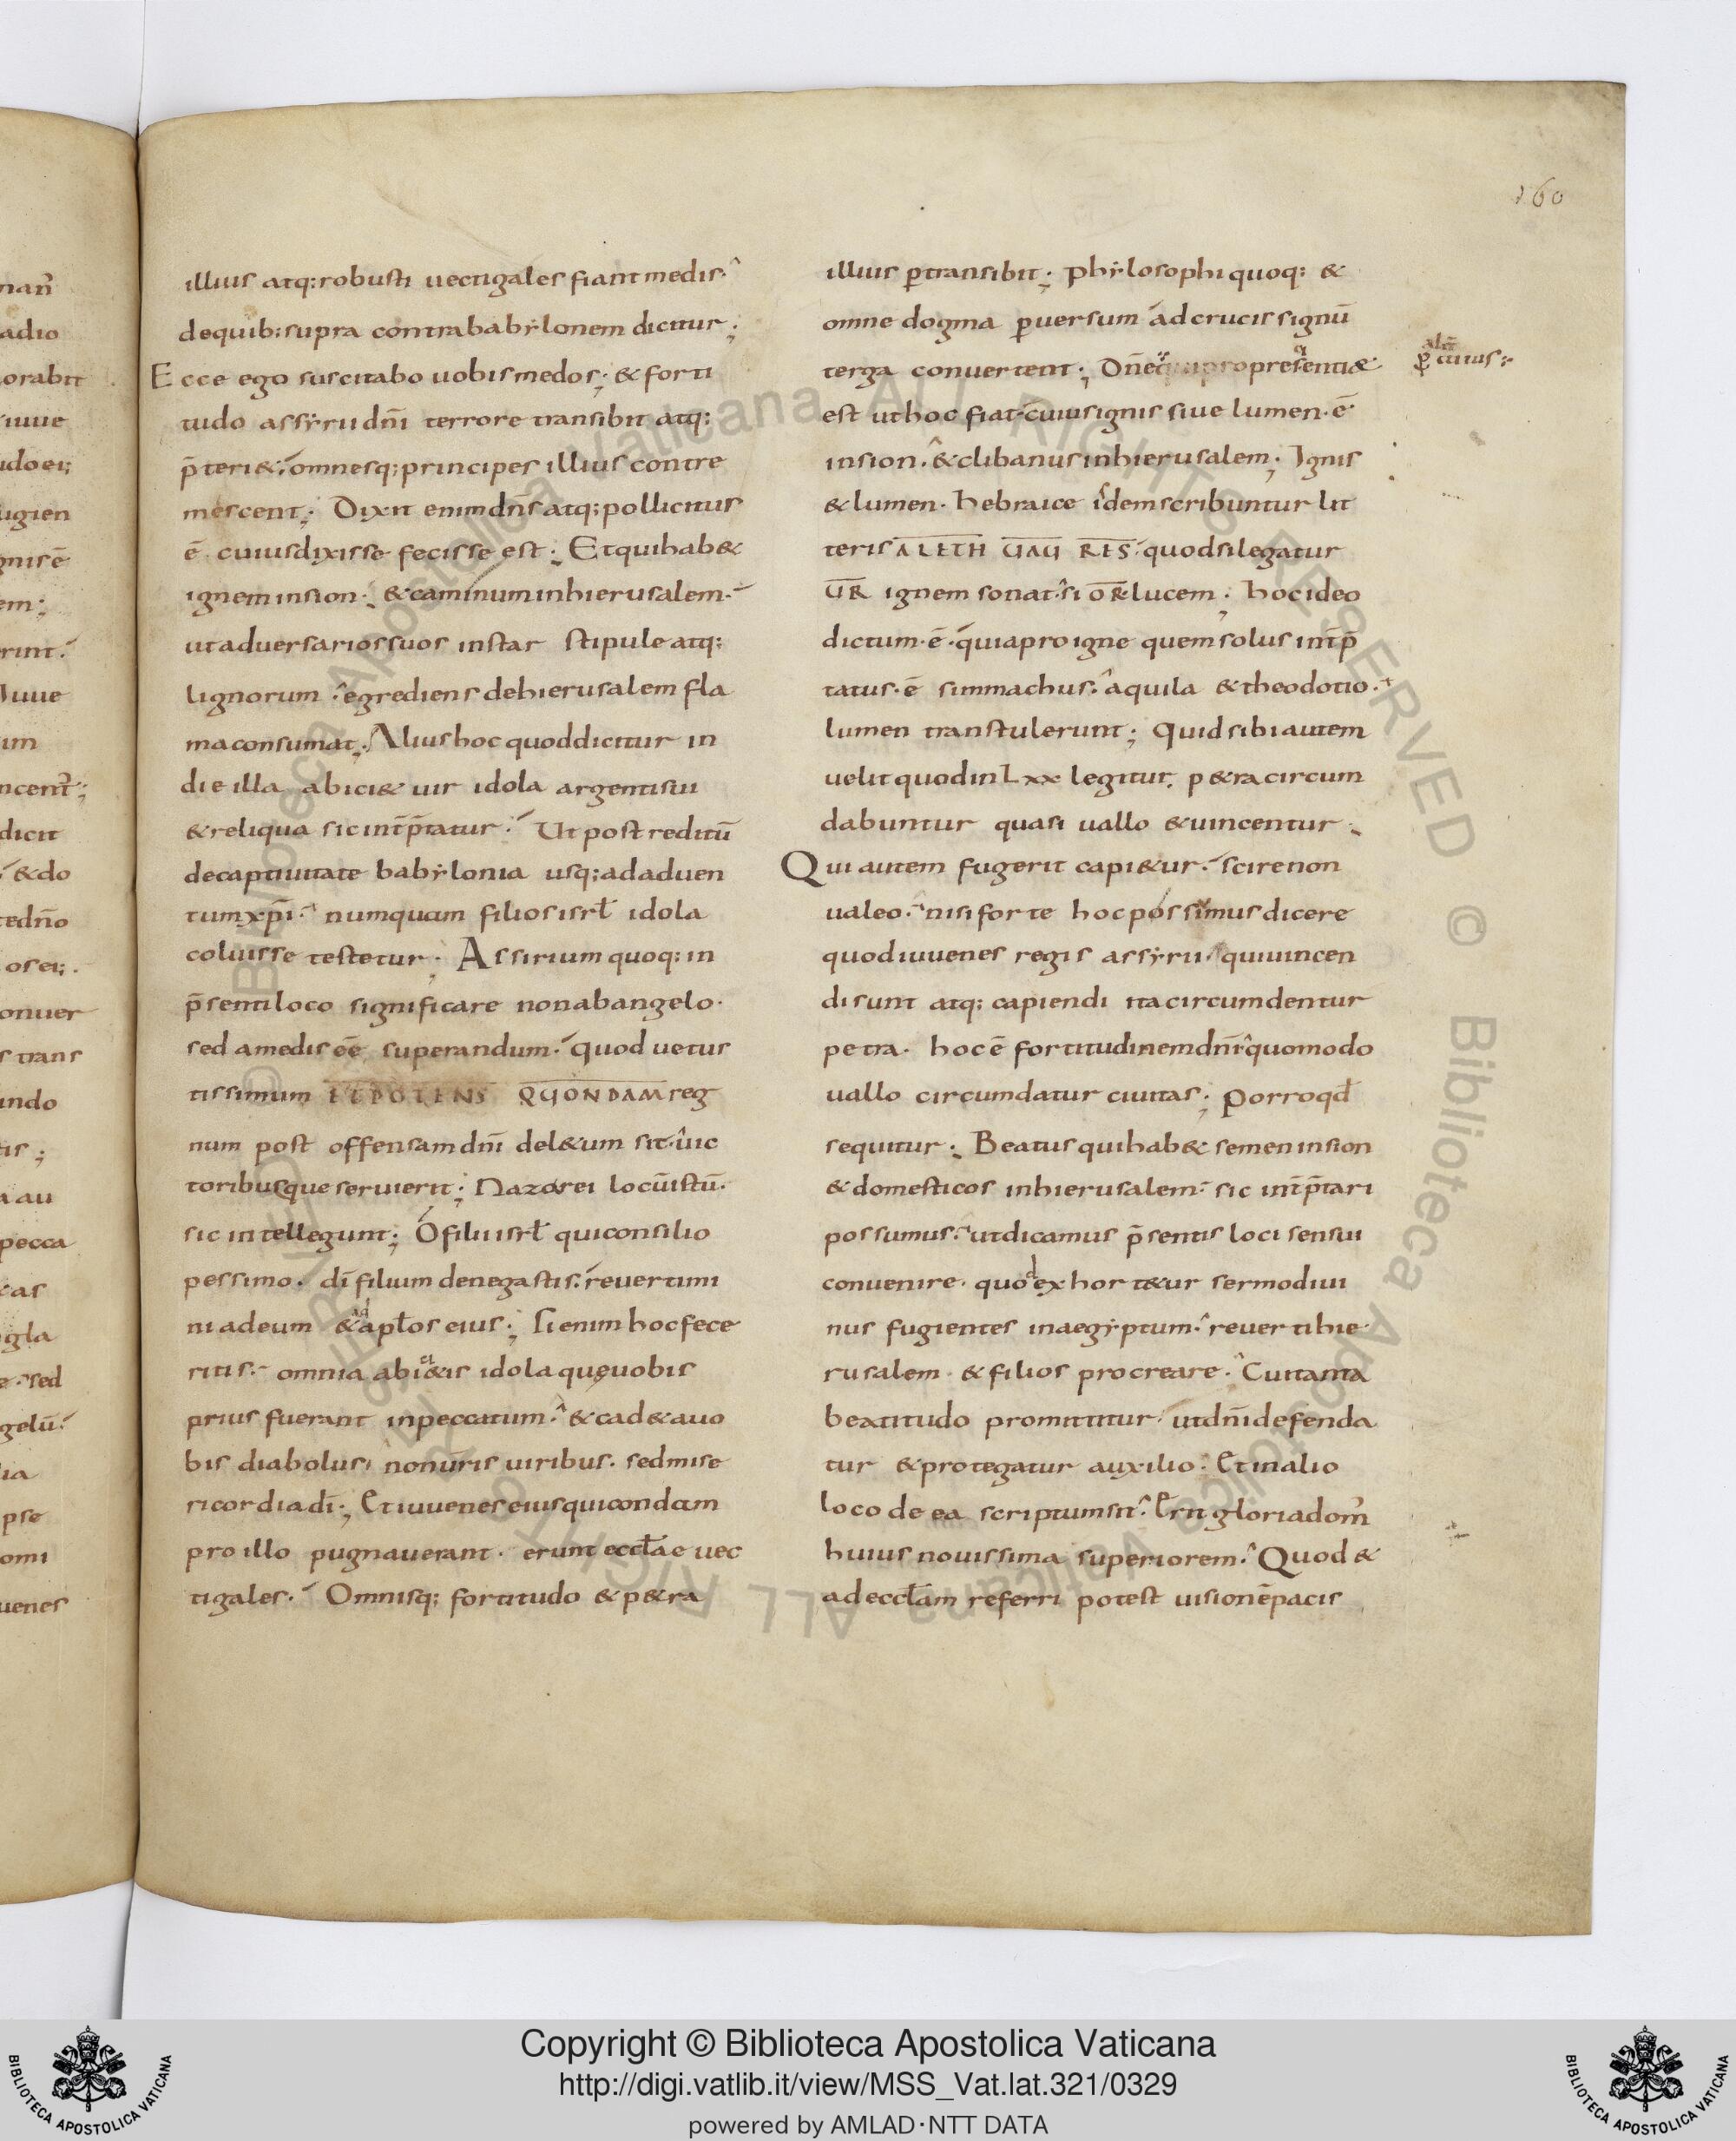 160
illius atq: robusti uectigales fiant medis.
de quib: supra contra babẏlonem dicitur;
Ecce ego suscitabo uobis medos; & forti
tudo assẏrii dn̄i terrore transibit atq:
p̄teri&; omnesq; principes illius contre
mescent; Dixit enim dn̄s atq; pollicitus
ē cuius dixisse fecisse est; Et qui hab&
ignem in sion; & caminum in hierusalem.
ut aduersarios suos instar stipule atq:
lignorum egrediens de hierusalem fla
ma consumat; Alius hoc quod dicitur in
die illa abici& uir idola argenti sui
& reliqua sic int̄p̄tatur. Ut post reditū
de captiuitate babẏlonia usq; ad aduen
tum xp̄i. numquam filios isrl̄ idola
coluisse testetur; Assirium quoq: in
p̄senti loco significare non ab angelo.
sed a medis eē superandum. Quod uetus
tissimum ET POTENS QUONDAM reg
num post offensam dn̄i del&um sit. uic
toribusque seruierit; Nazorei locū istū.
sic intellegunt; O filii isrl̄ qui consilio
pessimo. dī filium denegastis. reuertimi
ni ad eum & ad apl̄os eius; Si enim hoc fece
ritis. omnia abici&is idola quę uobis
prius fuerant in peccatum. & cad& a uo
bis diabolus, non ur̄is uiribus. sed mise
ricordia dī; Et iuuenes eius qui condam
pro illo pugnauerant. erunt eccl̄ae uec
tigales. Omnisq; fortitudo & p&ra
illius ptransibit; philosophi quoq: &
omne dogma puersum ad crucis signū
terga conuertent; Dn̄i
est ut hoc fiat. cuius ignis siue lumen. ē
in sion. & clibanus in hierusalem; Ignis
& lumen. hebraice isdem scribuntur lit
teris ALETH UAU RES. quod si legatur
UR ignem sonat. si OR lucem; hoc ideo
dictum. ē. quia pro igne quem solus int̄p̄
tatus. ē simmachus. aquila & theodotio.
lumen transtulerunt; Quid sibi autem
uelit quod in Lxx legitur. p&ra circum
dabuntur quasi uallo & uincentur
Qui autem fugerit capi&ur. scire non
ualeo. nisi forte hoc possimus dicere
quod iuuenes regis assẏrii qui uincen
di sunt atq: capiendi ita circumdentur
petra. hoc ē fortitudinem dn̄i. quomodo
uallo circumdatur ciuitas; Porro qd̄
sequitur; Beatus qui hab& semen in sion
& domesticos in hierusalem. sic int̄p̄tari
possumus. ut dicamus p̄sentis loci sensui
conuenire. quod exhort&ur sermo diui
nus fugientes in aegẏptum. reuerti hie
rusalem. & filios procreare. Cui tanta
beatitudo promittitur. ut dn̄i defenda
tur & protegatur auxilio. Et in alio
loco de ea scriptum sit. Erit gloria dom̄
huius nouissima superiorem. Quod &
ad eccl̄am referri potest uisionē pacis
Copyright © Biblioteca Apostolica Vaticana
http://digi.vatlib.it/view/MSS_Vat.lat.321/0329
powered by AMLAD·NTT DATA
BIBLIOTECA APOSTOLICA VATICANA
BIBLIOTECA APOSTOLICA VATICANA